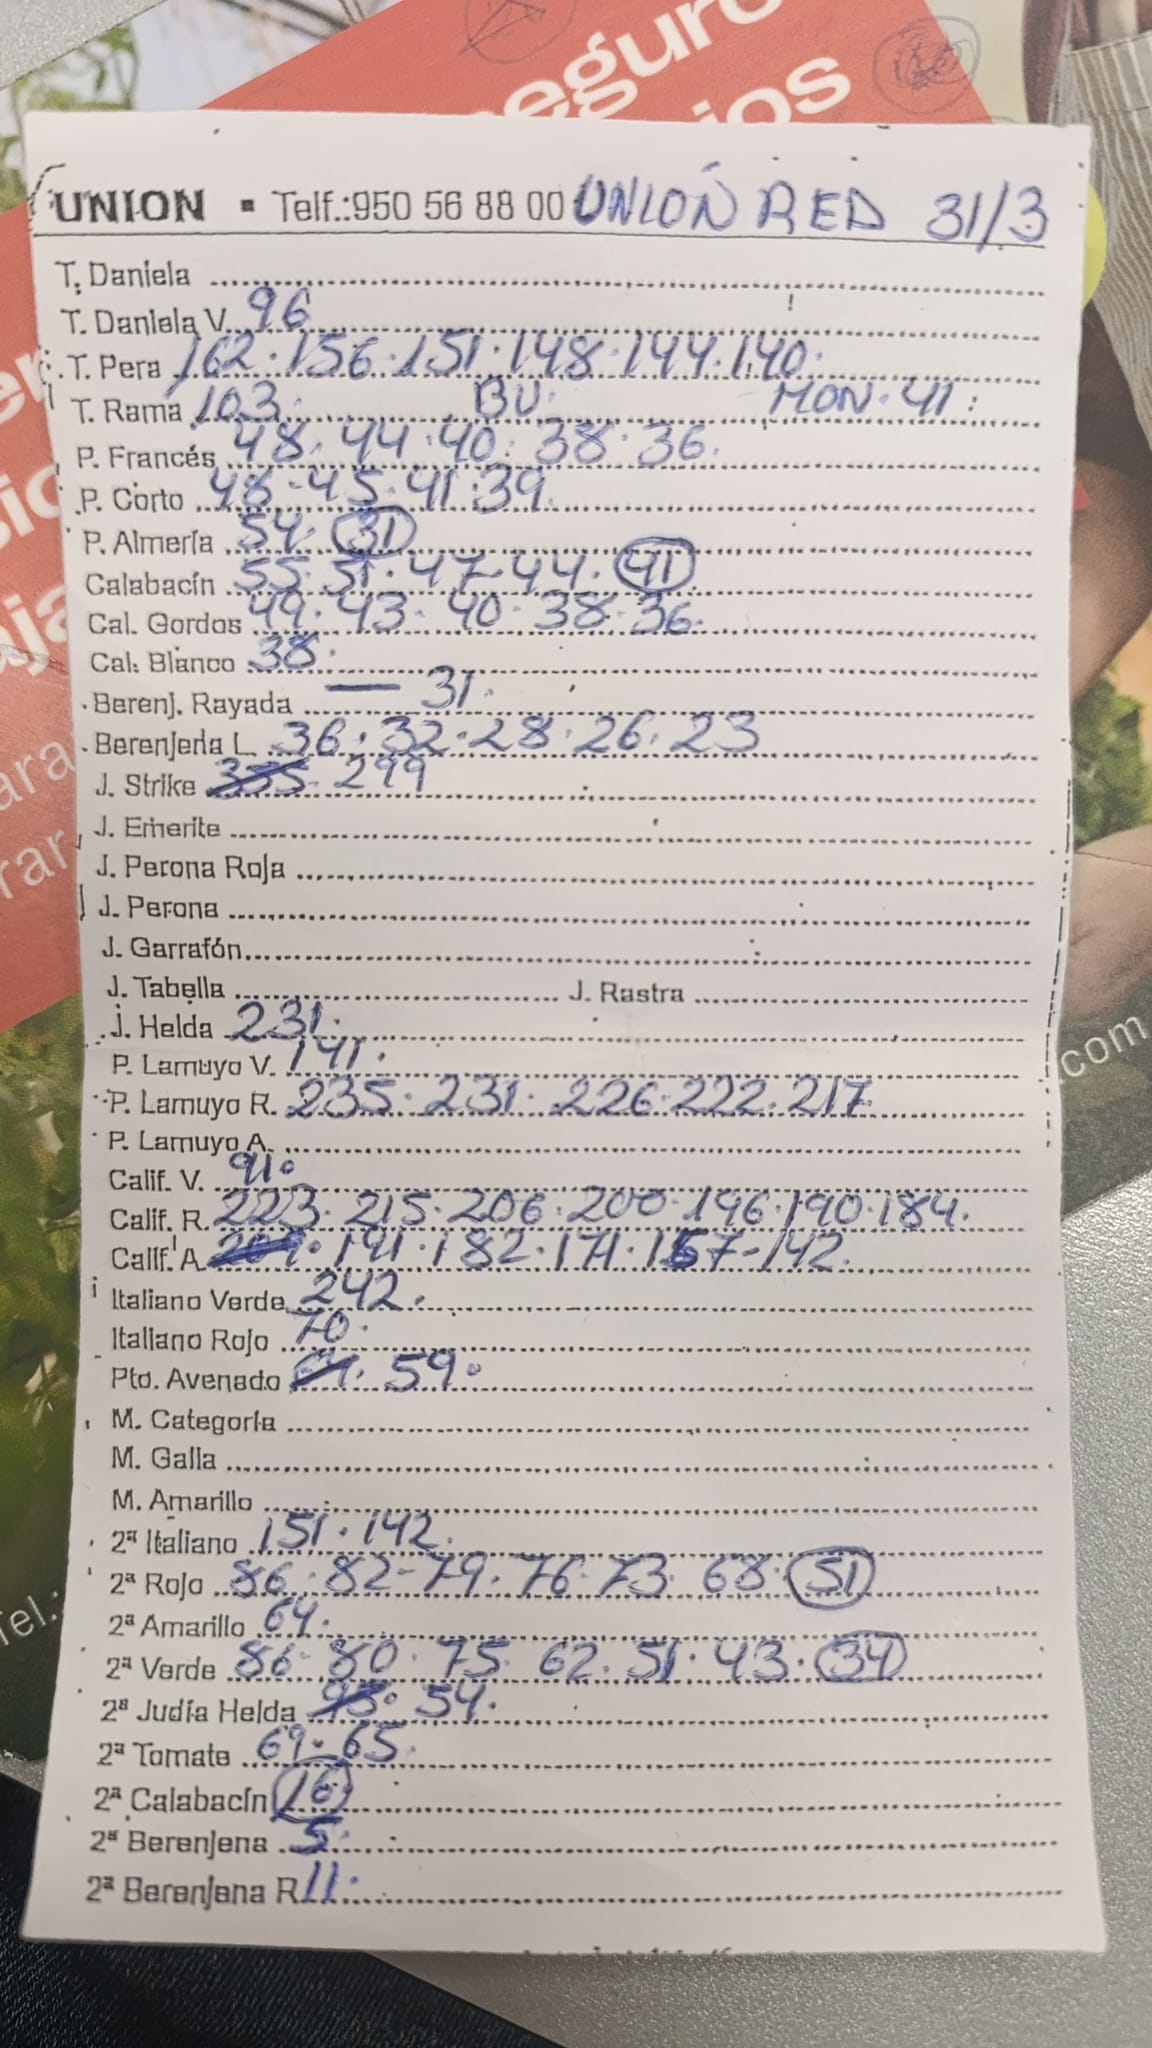 eguro
ios
UNION ▪ Telf.:950 56 88 00 UNION RED 31/3
T. Daniela
T. Daniela V. 96
T. Pera 162. 156. 151. 148. 144. 140.
T. Rama 103. BU. MON. 41.
P. Francés 48. 44. 40. 38. 36.
P. Corto 48-45. 41. 39.
P. Almería 54. 31
Calabacín 55. 51. 47-44. 41
Cal. Gordos 49. 43. 40. 38. 36.
Cal. Blanco 38.
Berenj. Rayada — 31.
Berenjena L. 36. 32. 28. 26. 23
J. Strike 335. 299
J. Emerite
J. Perona Roja
J. Perona
J. Garrafón
J. Tabella J. Rastra
J. Helda 231.
P. Lamuyo V. 141.
P. Lamuyo R. 235. 231. 226. 222. 217.
P. Lamuyo A.
Calif. V. 91.
Calif. R. 223. 215. 206. 200. 196. 190. 184.
Calif. A. 191. 182. 171. 157-142.
Italiano Verde 242.
Italiano Rojo 70.
Pto. Avenado 59.
M. Categoría
M. Galia
M. Amarillo
2ª Italiano 151. 142.
2ª Rojo 86. 82-79. 76-73. 68. 51
2ª Amarillo 64.
2ª Verde 86. 80. 75. 62. 51. 43. 34
2ª Judía Helda 54.
2ª Tomate 69. 65.
2ª Calabacín 16
2ª Berenjena 5.
2ª Berenjena R. 11.
.com
Tel.: